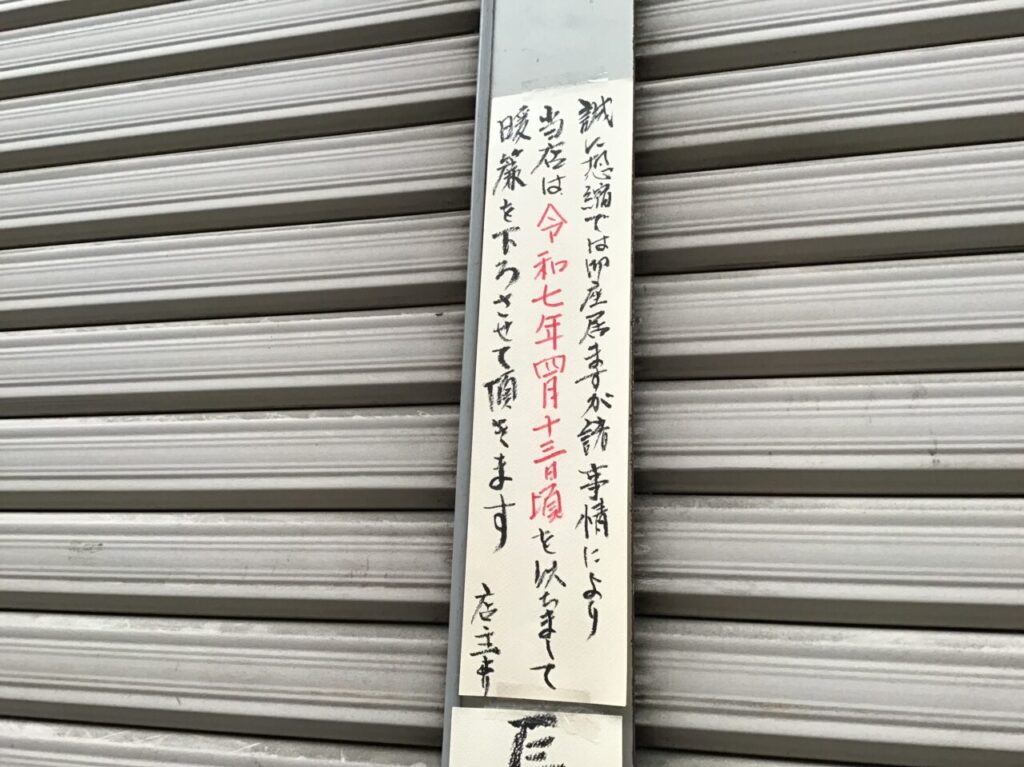 誠に恐縮では御座居ますが諸事情により
当店は令和七年四月十三日頃を以ちまして
暖簾を下ろさせて頂きます
店主